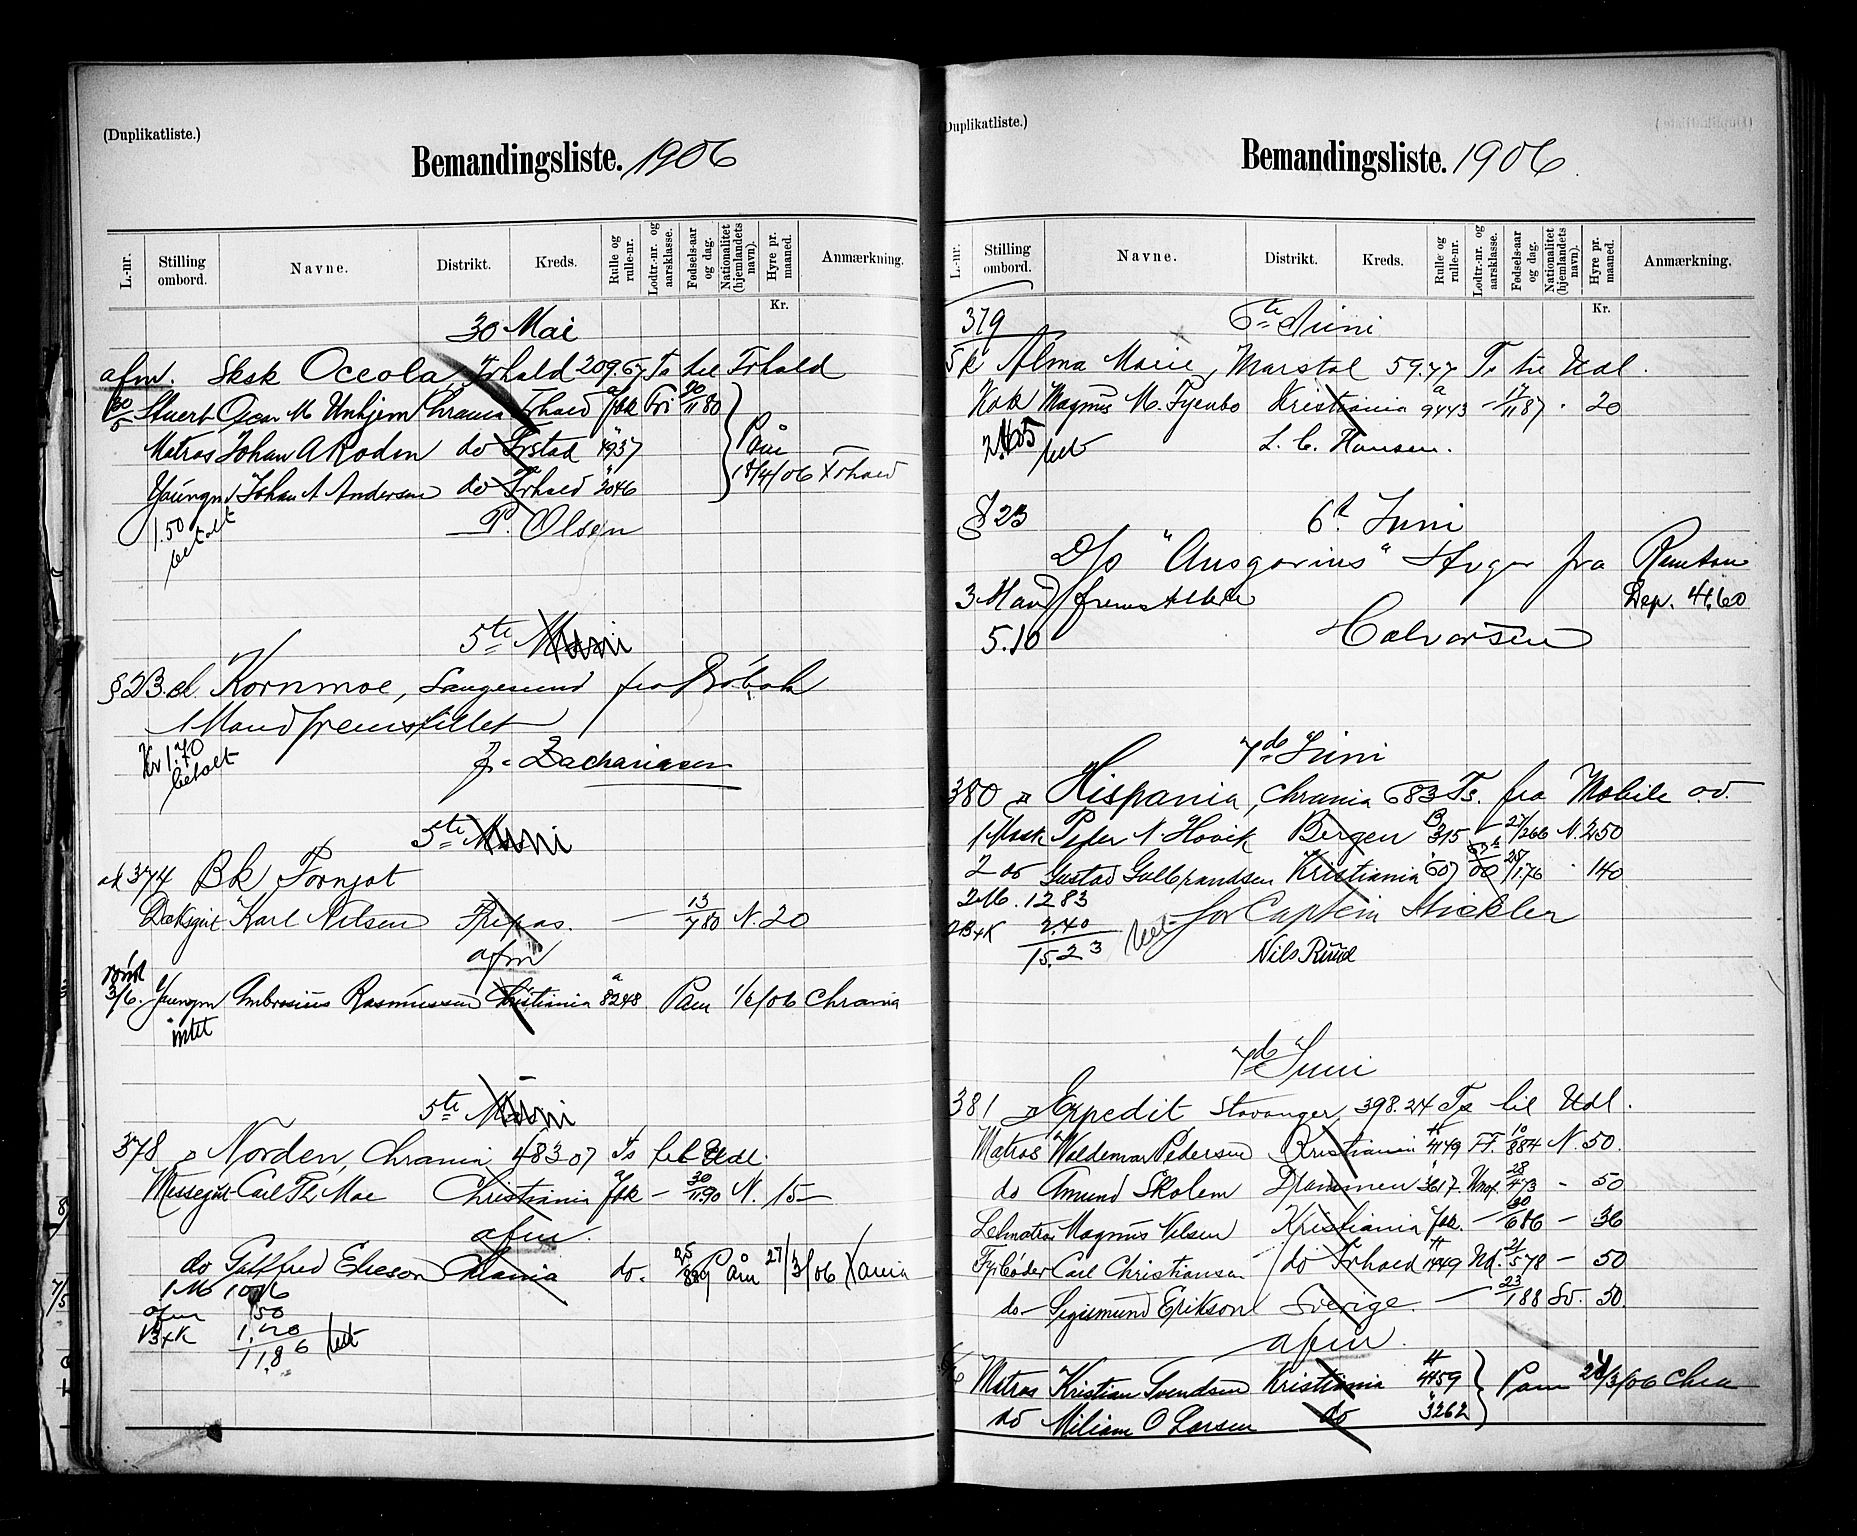 (Duplikatliste.)
Bemandingsliste. 1906
L.-nr. Stilling ombord. Navne. Distrikt. Kreds. Rulle og rulle-nr. Lodtr-nr. og aarsklasse. Fødsels-aar og dag. Nationalitet (hjemlandets navn). Hyre pr. maaned. Anmærkning.
Kr.
30 Mai
afm. Sksk Occola, Frhald 209.67 Ts til Frhald
30/5 Stuert Oscar M Unhjem Chrania Frhald Jbk Fri 30/11 80
Matros Johan A Roden do Frstad 1937 Påm
Youngm Johan A Andersen do Frhald 2046 18/4/06 Frhald
1.50 P. Olsen
betalt
5te Juni
§ 23. d. Kornmoe, Langesund fra
1 Mand fremstillet
Kr 1.70 Zachariasen
betalt
5te Juni
374 Bk Fornjot
Dæksgut Karl Nilsen Trepas. — 13/7 80 N. 20
afm
3/6. Youngm Ambrosius Rasmussen Kristiania a 8248 Pam 1/6/06 Chrania
intet
5te Juni
378 " Norden, Chrania 483.07 Ts til Udl.
Messegut Carl Th Moe Christiania Jbk — 30/11 90 N. 15 —
afm.
do Gulfred Elieson Chrania do. 25/8 89 Påm 27/3/06 Xania
1 M
afm 50
B+K 1.20
11.86 bet
(Duplikatliste.)
Bemandingsliste. 1906.
L.-nr. Stilling ombord. Navne. Distrikt. Kreds. Rulle og rulle-nr. Lodtr-nr. og aarsklasse. Fødsels-aar og dag. Nationalitet (hjemlandets navn). Hyre pr. maaned. Anmærkning.
Kr.
379 6te Juni
Sk Alma Marie, Marstal 59.77 Ts til Udl.
Kok Magnus M. Fyenbo Kristiania a 9443 — 17/11 87 . 20
bet L. C. Hansen.
§ 23 6t Juni
D/s "Ansgarius" Stvgr fra
3 Mand fremstillede Dep. 41.60
5.10 Halvorsen
7de Juni
380 " Hispania, Chrania 683 Ts. fra Mobile o.v.
1 Mask Peter N. Hovik Bergen B 315 — 27/2 66 N. 250
2 do Gustav Gulbrandsen Kristiania 607 28/1 76 . 140
2 M. 12 83 for Captein Stickler
2B+K 2.40 Nils Ruud
15.23 bet
7de Juni
381 " Expedit Stavanger, 398.24 Ts til Udl.
Matros Waldemar Pedersen Kristiania H 4149 FF. 10/8 84 N. 50.
do Amund Skolem Drammen 3617. 28/4 73 — 50
Letmatros Magnus Nilsen Kristiania Jbk. — 30/6 86 — 36
Fyrbøder Carl Christiansen do Frhald H 1449 Ud. 21/5 78 — 50
do — Segismund Erikson Sverige. — 23/1 88 Sv. 50.
afm.
Matros Kristian Svendsen Kristiania H 4459 Pam 24/3/06 Chra
do Miliam O Larsen do 3262